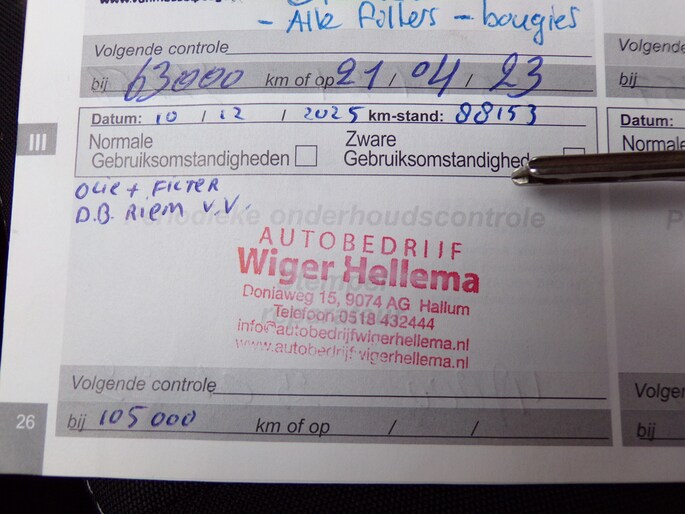 - Alle filters - bougies
Volgende controle
bij 63000 km of op 21 / 04 / 23
Volgende
bij
Datum: 10 / 12 / 2025 km-stand: 88153
Datum:
III
Normale
Gebruiksomstandigheden
Zware
Gebruiksomstandighed
Normale
Gebruik
OLIE + FILTER
D.B. RIEM V.V.
Periodieke onderhoudscontrole
AUTOBEDRIJF
Wiger Hellema
Stempel
Doniaweg 15, 9074 AG Hallum
Telefoon 0518 432444
info@autobedrijfwigerhellema.nl
www.autobedrijfwigerhellema.nl
Volgende controle
Volgen
26
bij 105000 km of op / /
bij